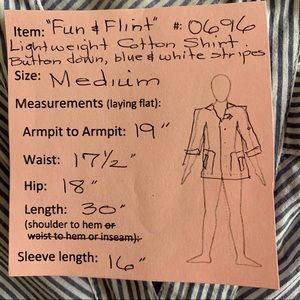 Item: "Fun & Flint" #: 0696
Lightweight Cotton Shirt.
Button down, blue & white stripes
Size: Medium
Measurements (laying flat):
Armpit to Armpit: 19"
Waist: 17½"
Hip: 18"
Length: 30"
(shoulder to hem or
waist to hem or inseam):
Sleeve length: 16"